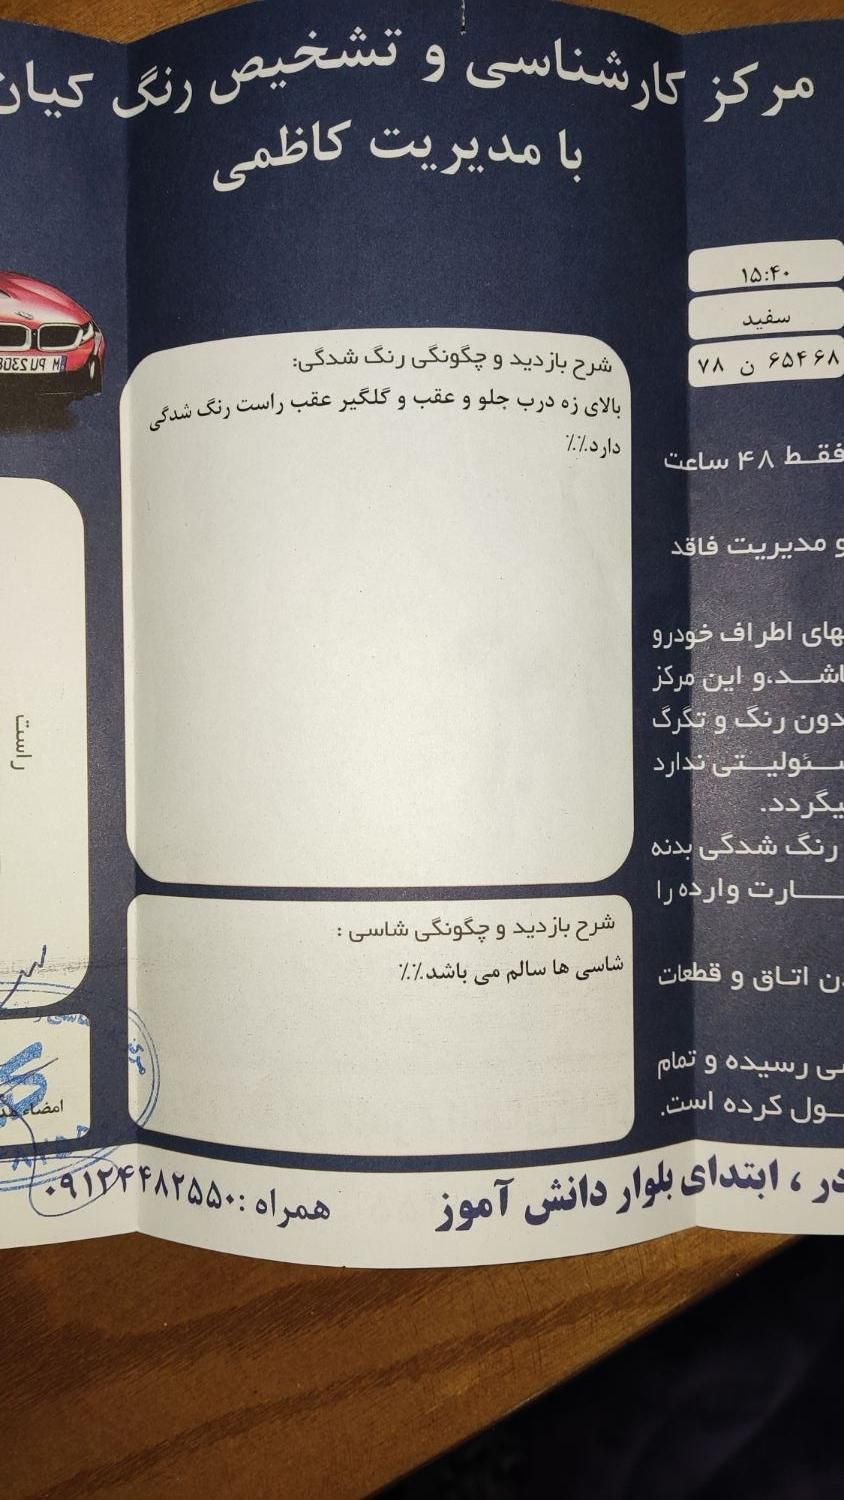 مرکز کارشناسی و تشخیص رنگ کیان
با مدیریت کاظمی
۱۵:۴۰
سفید
۶۵۴۶۸ ن ۷۸
شرح بازدید و چگونگی رنگ شدگی:
بالای زه درب جلو و عقب و گلگیر عقب راست رنگ شدگی
دارد.٪٪
فقط ۴۸ ساعت
و مدیریت فاقد
اطراف خودرو
و این مرکز
رنگ و تگرگ
ندارد
رنگ شدگی بدنه
وارده را
اتاق و قطعات
رسیده و تمام
کرده است.
شرح بازدید و چگونگی شاسی :
شاسی ها سالم می باشد.٪٪
راست
مرکز
امضاء
، ابتدای بلوار دانش آموز
همراه :۰۹۱۲۴۴۸۲۵۵۰